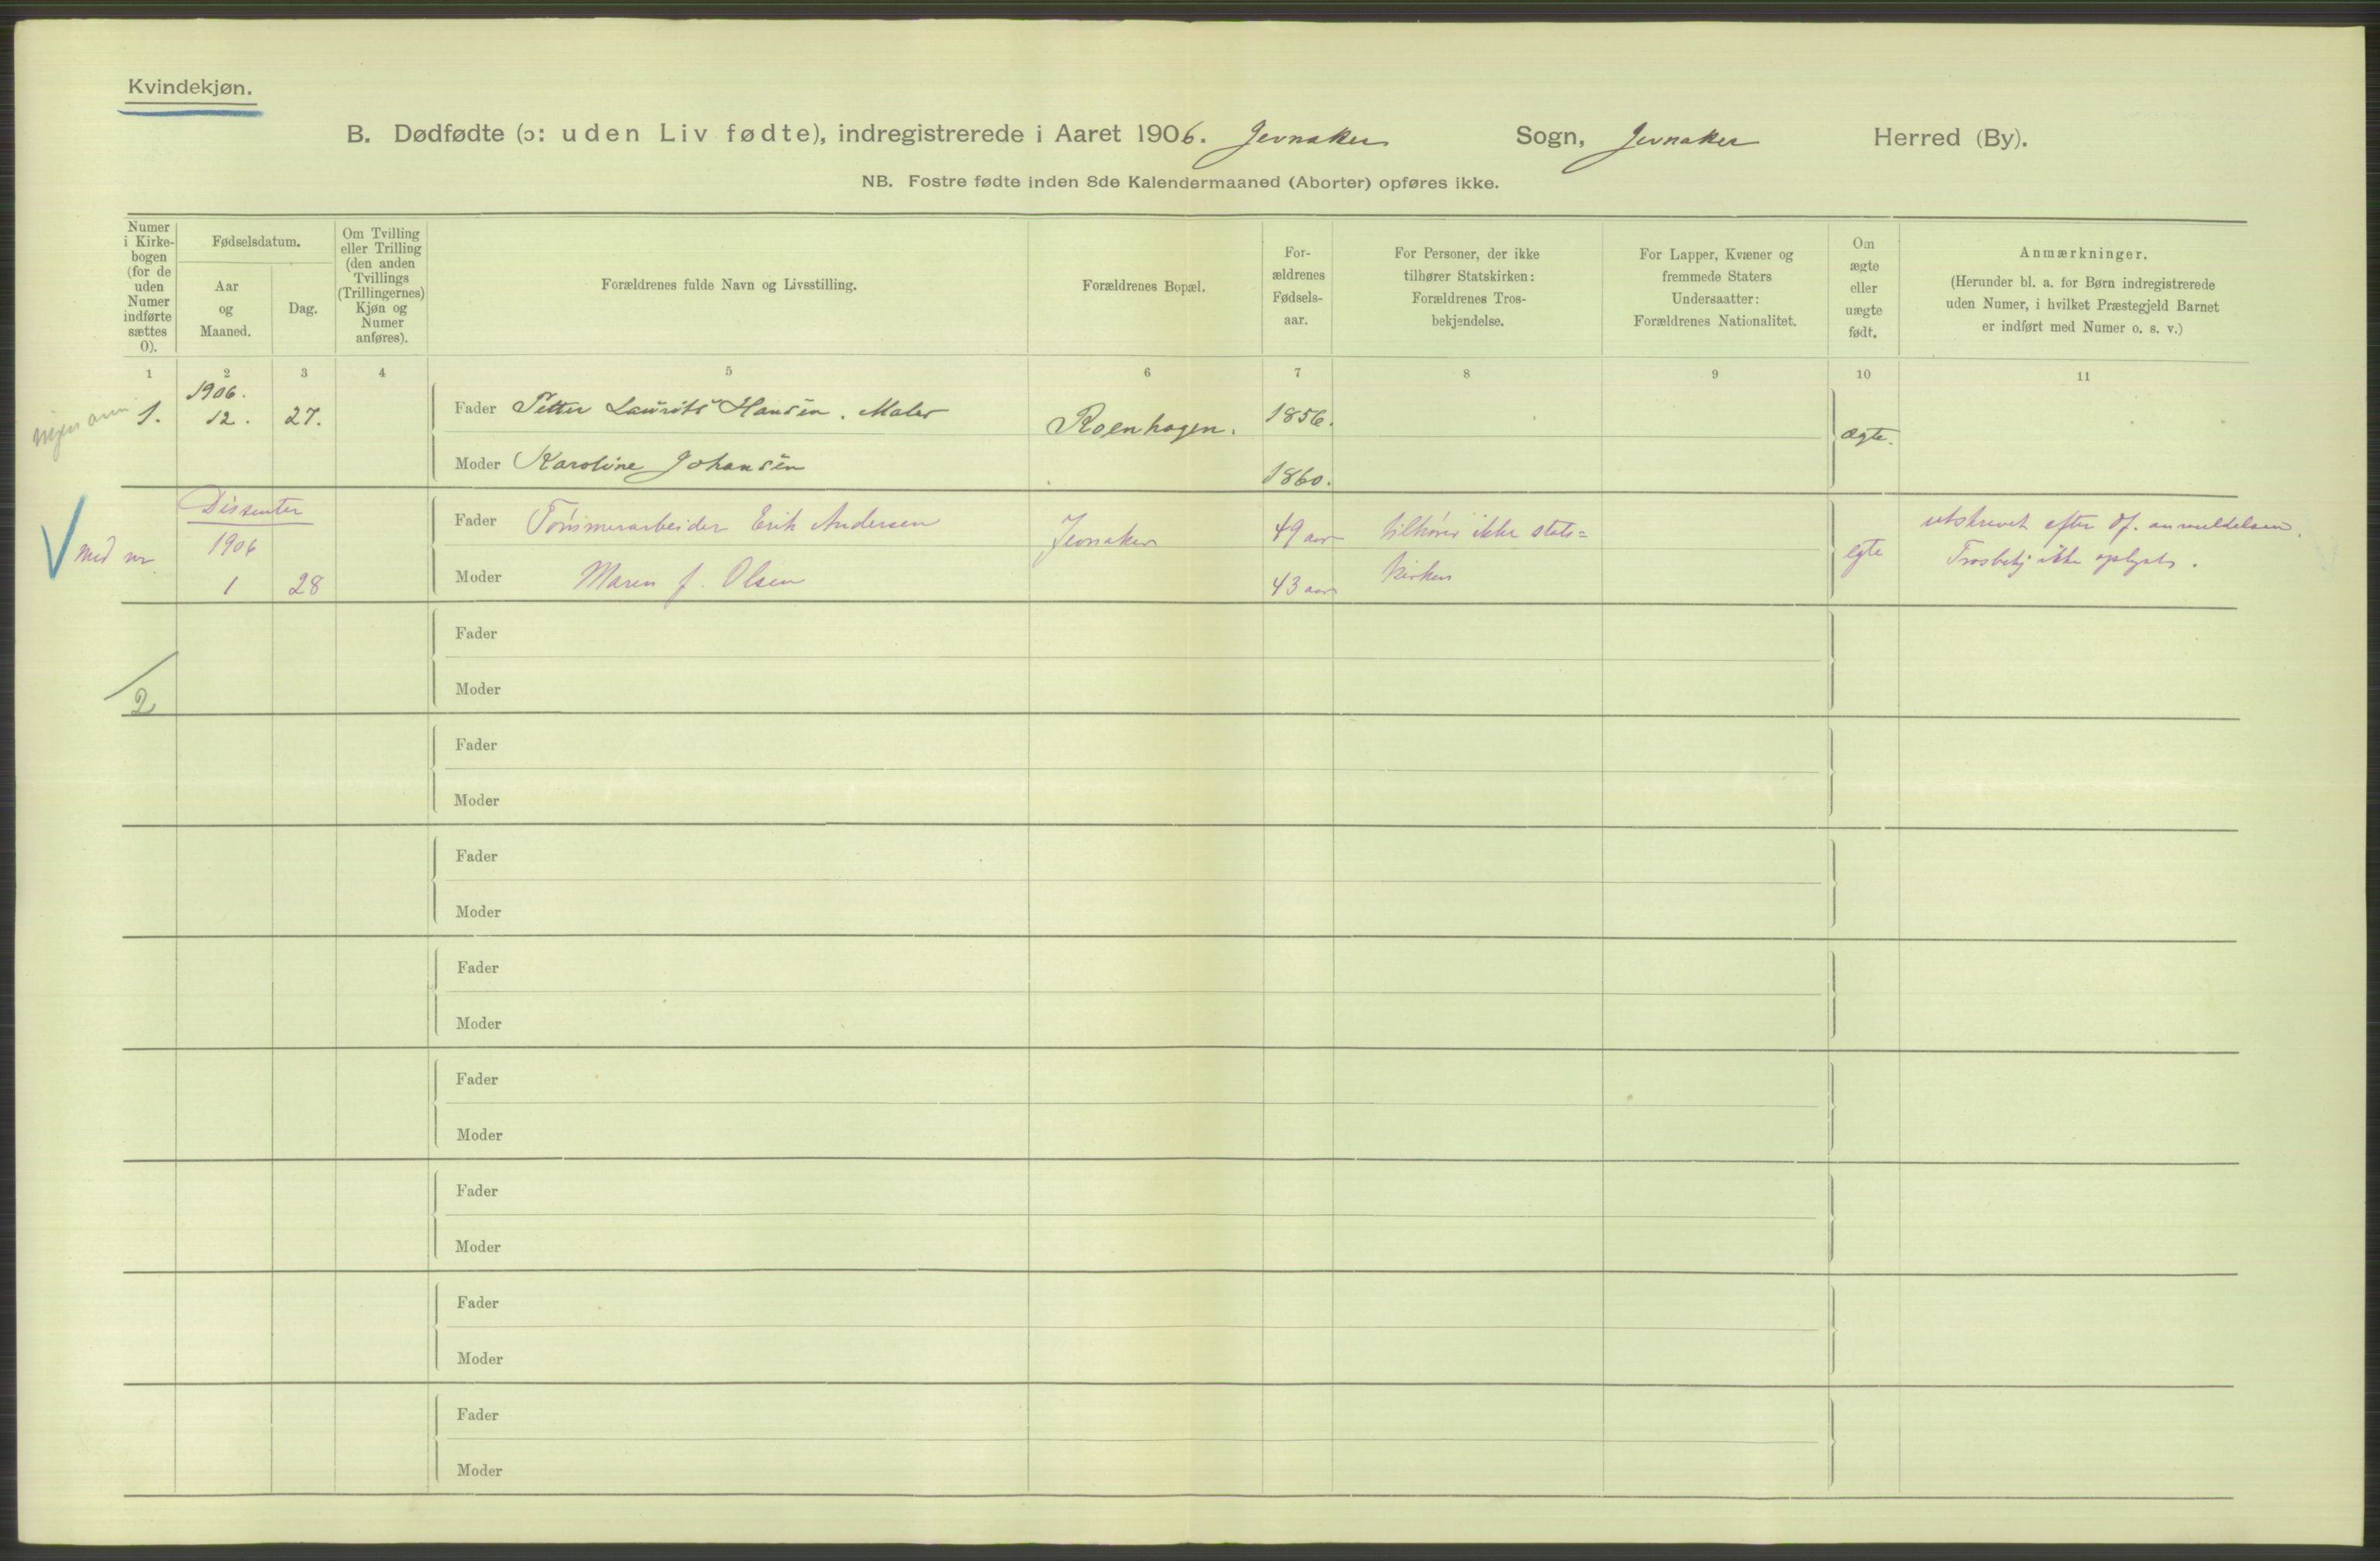 Kvindekjøn.
B. Dødfødte (ɔ: uden Liv fødte), indregistrerede i Aaret 1906. Jevnaker Sogn, Jevnaker Herred (By).
NB. Fostre fødte inden 8de Kalendermaaned (Aborter) opføres ikke.
Numer
i Kirke-
bogen
(for de
uden
Numer
indførte
sættes
0).
Fødselsdatum.
Aar
og
Maaned.
Dag.
Om Tvilling
eller Trilling
(den anden
Tvillings
(Trillingernes)
Kjøn og
Numer
anføres).
Forældrenes fulde Navn og Livsstilling.
Forældrenes Bopæl.
For-
ældrenes
Fødsels-
aar.
For Personer, der ikke
tilhører Statskirken:
Forældrenes Tros-
bekjendelse.
For Lapper, Kvæner og
fremmede Staters
Undersaatter:
Forældrenes Nationalitet.
Om
ægte
eller
uægte
født.
Anmærkninger.
(Herunder bl. a. for Børn indregistrerede
uden Numer, i hvilket Præstegjeld Barnet
er indført med Numer o. s. v.)
1 2 3 4 5 6 7 8 9 10 11
1906.
1. 12. 27. Fader Petter Laurits Hansen. Maler Roenhagen. 1856. ægte.
Moder Karoline Johansen 1860.
Dissenter
Fader Tømmerarbeider Erik Andersen Jevnaker 49 aar tilhører ikke stats= utskrevet efter df. anmeldelsen.
med nr 1906 egte Trosbekj ikke oplyst.
1 28 Moder Maren f. Olsen 43 aar kirken
Fader
Moder
2
Fader
Moder
Fader
Moder
Fader
Moder
Fader
Moder
Fader
Moder
Fader
Moder
Fader
Moder